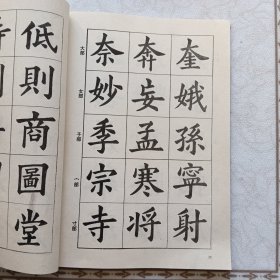 低
則
商
圖
堂
大部 奈 奔 奎
女部 妙 妄 娥
子部 季 孟 孫
宀部 宗 寒 寧
寸部 寺 将 射